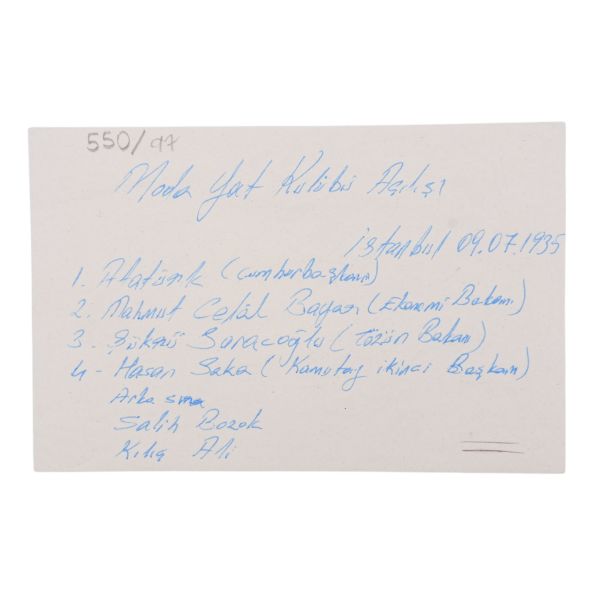 550/97
Moda Yat Kulübü Açılışı
İstanbul 09.07.1935
1. Atatürk (Cumhurbaşkanı)
2. Mahmut Celâl Bayar (Ekonomi Bakanı)
3. Şükrü Saraçoğlu (Tüzün Bakanı)
4- Hasan Saka (Kamutay ikinci Başkanı)
Arka sıra
Salih Bozok
Kılıç Ali